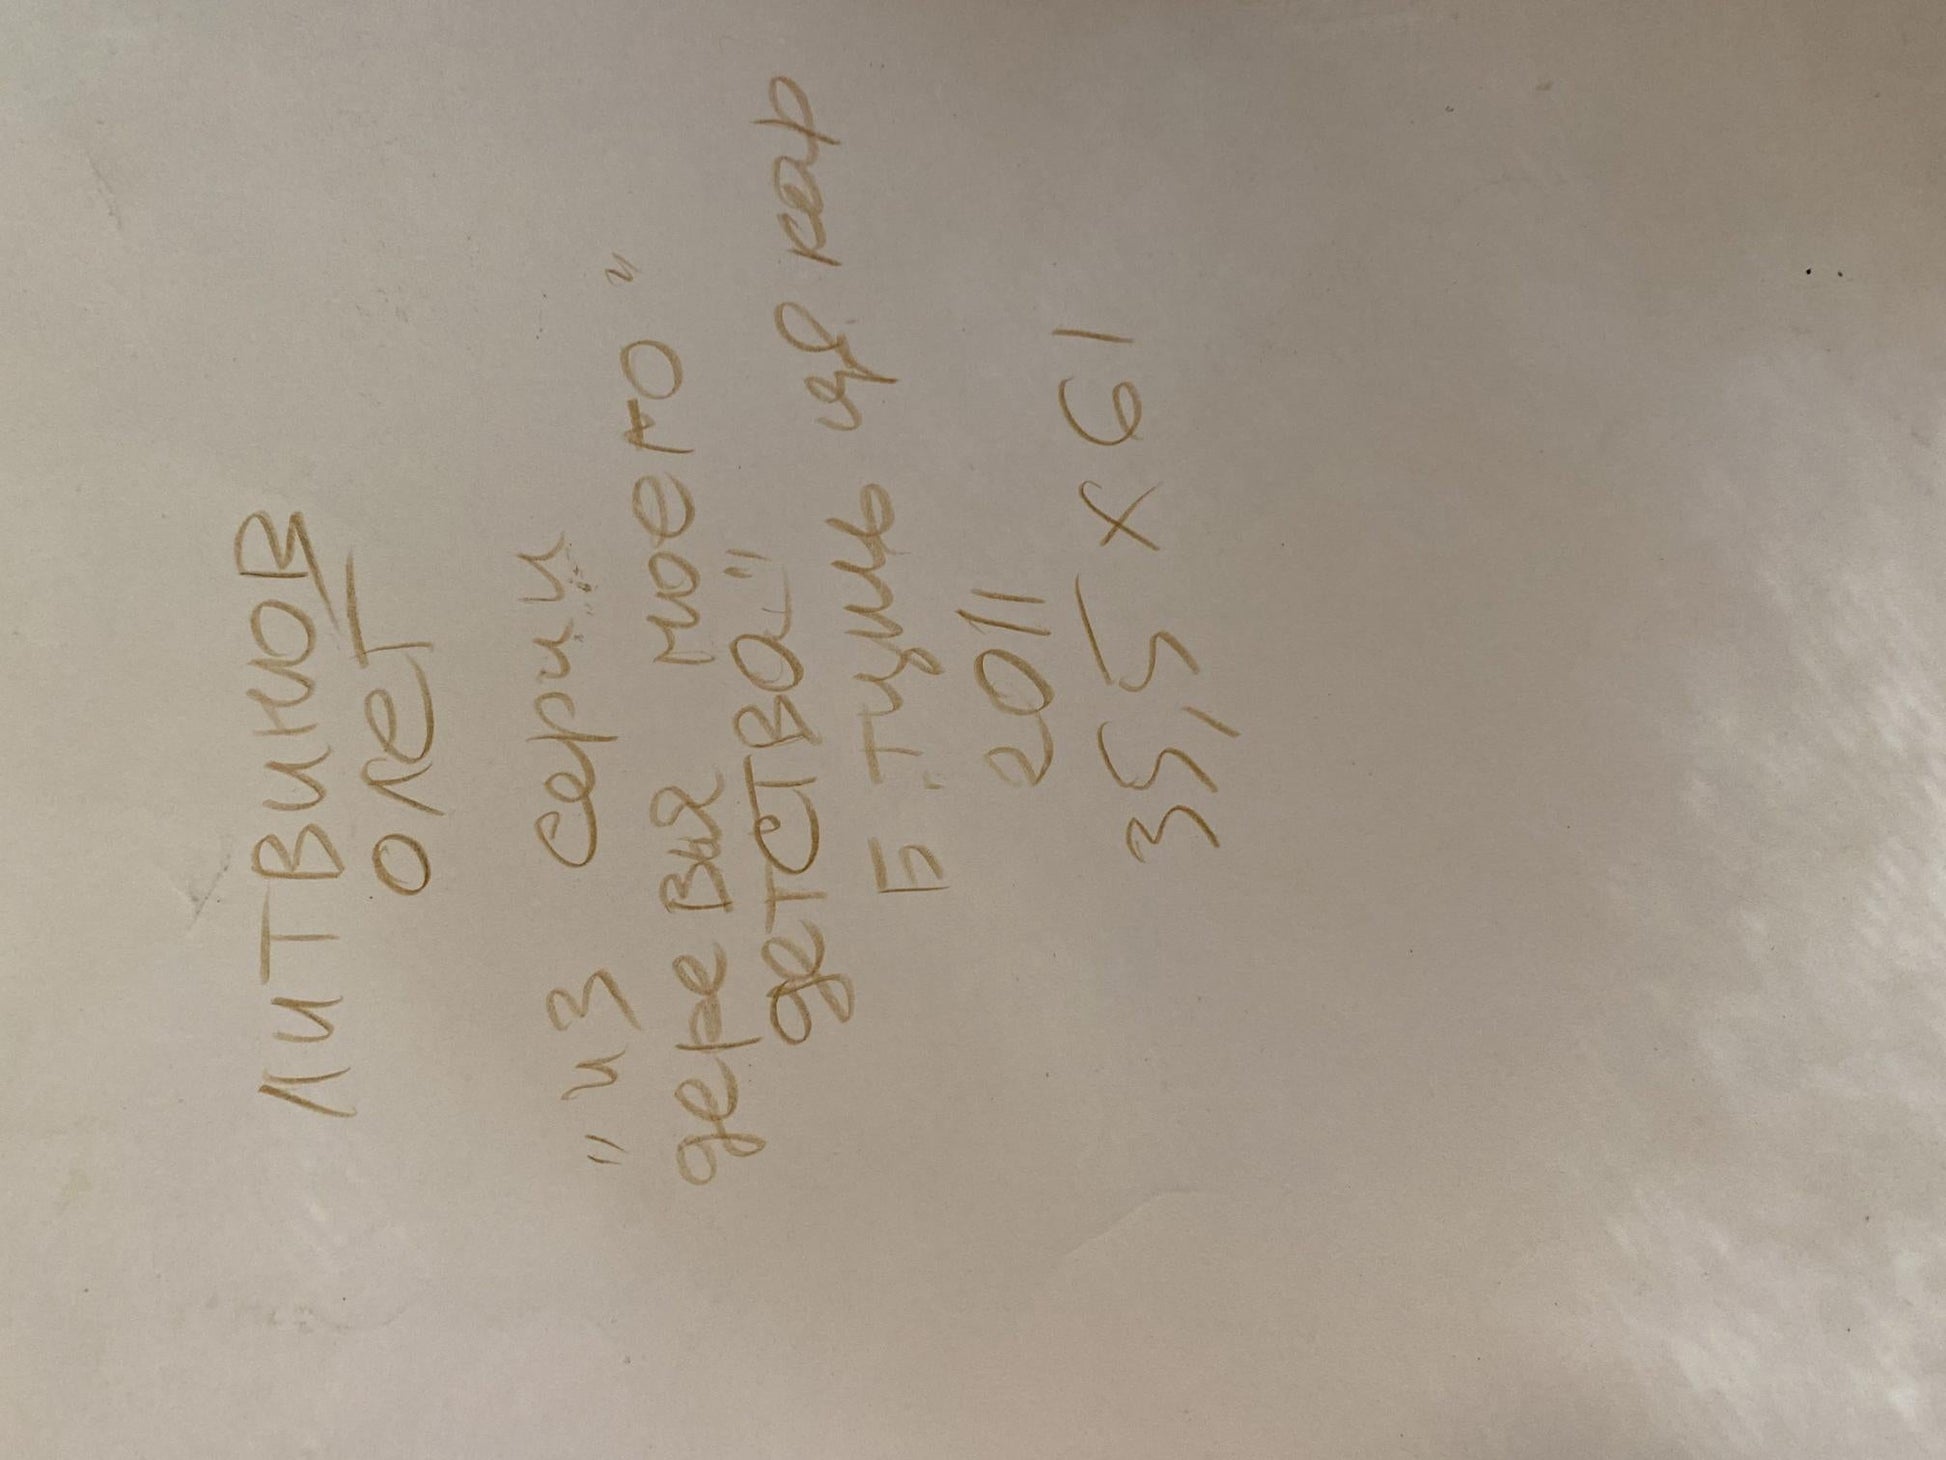 ЛИТВИНОВ
ОЛЕГ
"из серии"
деревня моего"
детства"
Б. тушь цв кар
2011
35,5 х 61